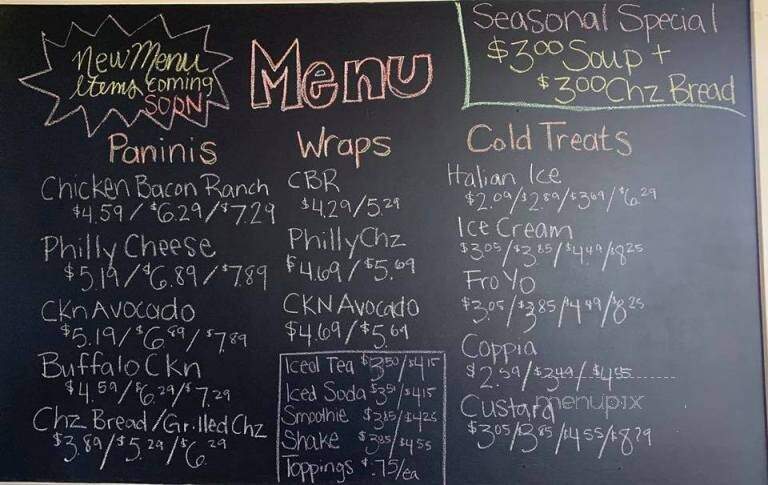 New Menu
Items coming
SOON
Menu
Seasonal Special
$3.00 Soup +
$3.00 Chz Bread
Paninis
Chicken Bacon Ranch
$4.59/$6.29/$7.29
Philly Cheese
$5.19/$6.89/$7.89
Ckn Avocado
$5.19/$6.89/$7.89
Buffalo Ckn
$4.59/$6.29/$7.29
Chz Bread/Grilled Chz
$3.89/$5.29/$6.29
Wraps
CBR
$4.29/5.29
Philly Chz
$4.69/$5.69
CKN Avocado
$4.69/$5.69
Iced Tea $3.50/$4.15
Iced Soda $3.51/$4.15
Smoothie $3.85/$4.25
Shake $3.85/$4.55
Toppings $.75/ea
Cold Treats
Italian Ice
$2.09/$2.89/$3.69/$6.29
Ice Cream
$3.05/$3.85/$4.49/$8.25
Fro Yo
$3.05/$3.85/$4.49/$8.25
Coppia
$2.59/$3.49/$4.55
Custard
$3.05/$3.85/$4.55/$8.79
menupix